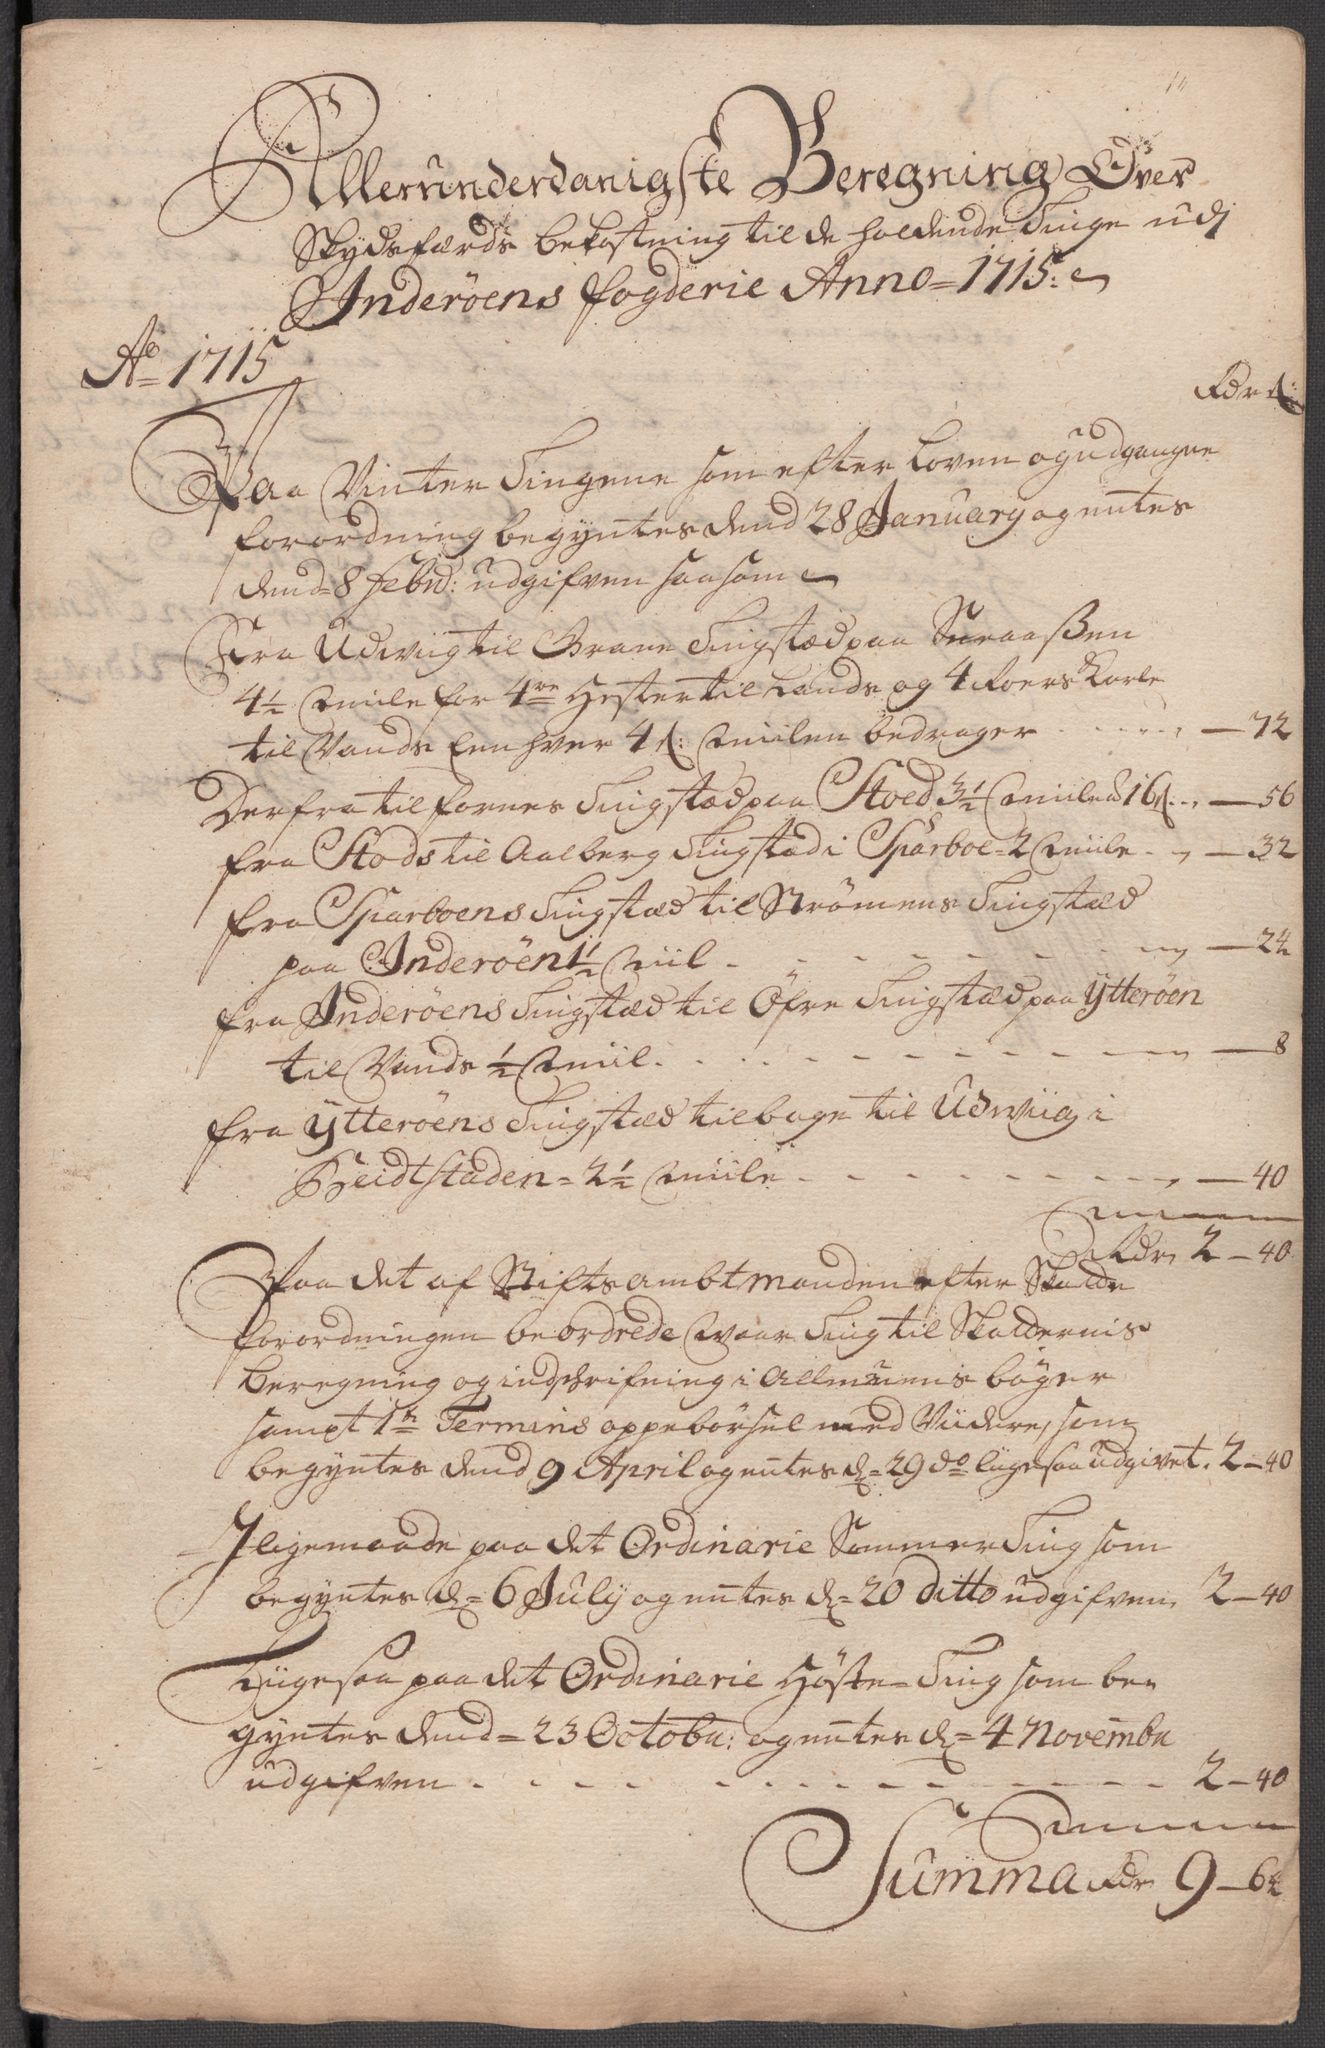 Allerunderdanigste Beregning Over
Skydsfærds bekostning til de holdende Tinge udj
Inderöens fogderie Anno = 1715:
Ao = 1715
Rdr s:
Paa Vinter Tingene som efter Loven og udgangne
forordning begyntes dend 28 January og entes
dend = 8 Febr: udgifven saasom
Fra Udwiig til Grane Tingstæd paa Snaaßen
4½ Miile for 4re Hester til Lands og 4 Roers Karle
til Vands Een hver 4 s: Miilen bedrager — 72
Derfra til Fornes Tingstæd paa Stoed 3½ Miile a 16 s. — 56
fra Stods til Aalberg Tingstæd i Sparboe = 2 Miile — 32
fra Sparboens Tingstæd til Strömens Tingstæd
paa Inderöen 1½ Miil — 24
fra Inderöens Tingstæd til Öfre Tingstæd paa Ytteröen
til Vands ½ Miil — 8
fra Ytteröens Tingstæd tilbage til Udwiig i
Beidtstaden = 2½ Miile — 40
Rdr 2 — 40
Paa det af Stiftsambtmanden efter Skatte
forordningen beordrede Waar Ting til Skatternis
Beregning og indschrifning i Allmuens böger
sampt 1te Termins oppebörsel med Viidere, som
begyntes dend 9 April og entes d = 29 do ligesaa udgivet. 2 — 40
Iligemaade paa det Ordinarie Sommer Ting som
begyntes d = 6 July og entes d = 20 ditto udgifven 2 — 40
Liigesaa paa det Ordinarie Höste = Ting som be=
gyntes dend = 23 Octobr: og entes d = 4 Novembr
udgifven 2 — 40
Summa Rdr 9 — 64